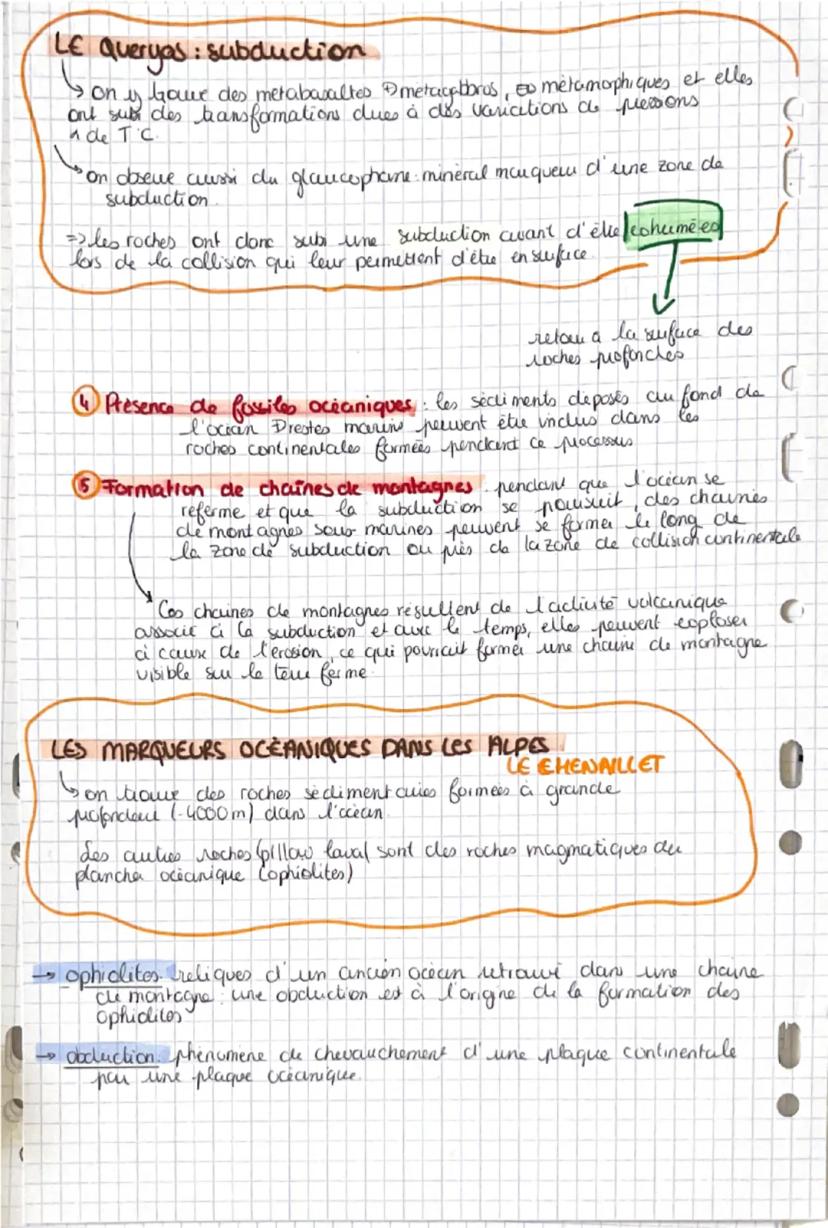 LE Queryas : subduction
↳ on y trouve des métabasaltes métagabbros, métamorphiques et elles
ont subi des transformations dues à des variations de pressions
de T°C.
↳ on observe aussi du glaucophane : minéral marqueur d'une zone de
subduction.
=> les roches ont donc subi une subduction avant d'être exhumées
lors de la collision qui leur permettent d'être en surface.
retour à la surface des
roches profondes
④ Présence de fossiles océaniques : les sédiments déposés au fond de
l'océan restes marins peuvent être inclus dans les
roches continentales formées pendant ce processus
⑤ Formation de chaînes de montagnes : pendant que l'océan se
referme et que la subduction se poursuit, des chaînes
de montagnes sous-marines peuvent se former le long de
la zone de subduction ou près de la zone de collision continentale
Ces chaînes de montagnes résultent de l'activité volcanique
associé à la subduction et avec le temps, elles peuvent exploser
à cause de l'érosion, ce qui pourrait former une chaîne de montagne
visible sur la terre ferme.
LES MARQUEURS OCÉANIQUES DANS LES ALPES
LE CHENAILLET
↳ on trouve des roches sédimentaires formées à grande
profondeur (-4000m) dans l'océan.
Les autres roches (pillow lava) sont des roches magmatiques du
plancher océanique (ophiolites)
→ ophiolites : reliques d'un ancien océan retrouvé dans une chaîne
de montagne : une obduction est à l'origine de la formation des
ophiolites
→ obduction : phénomène de chevauchement d'une plaque continentale
par une plaque océanique.